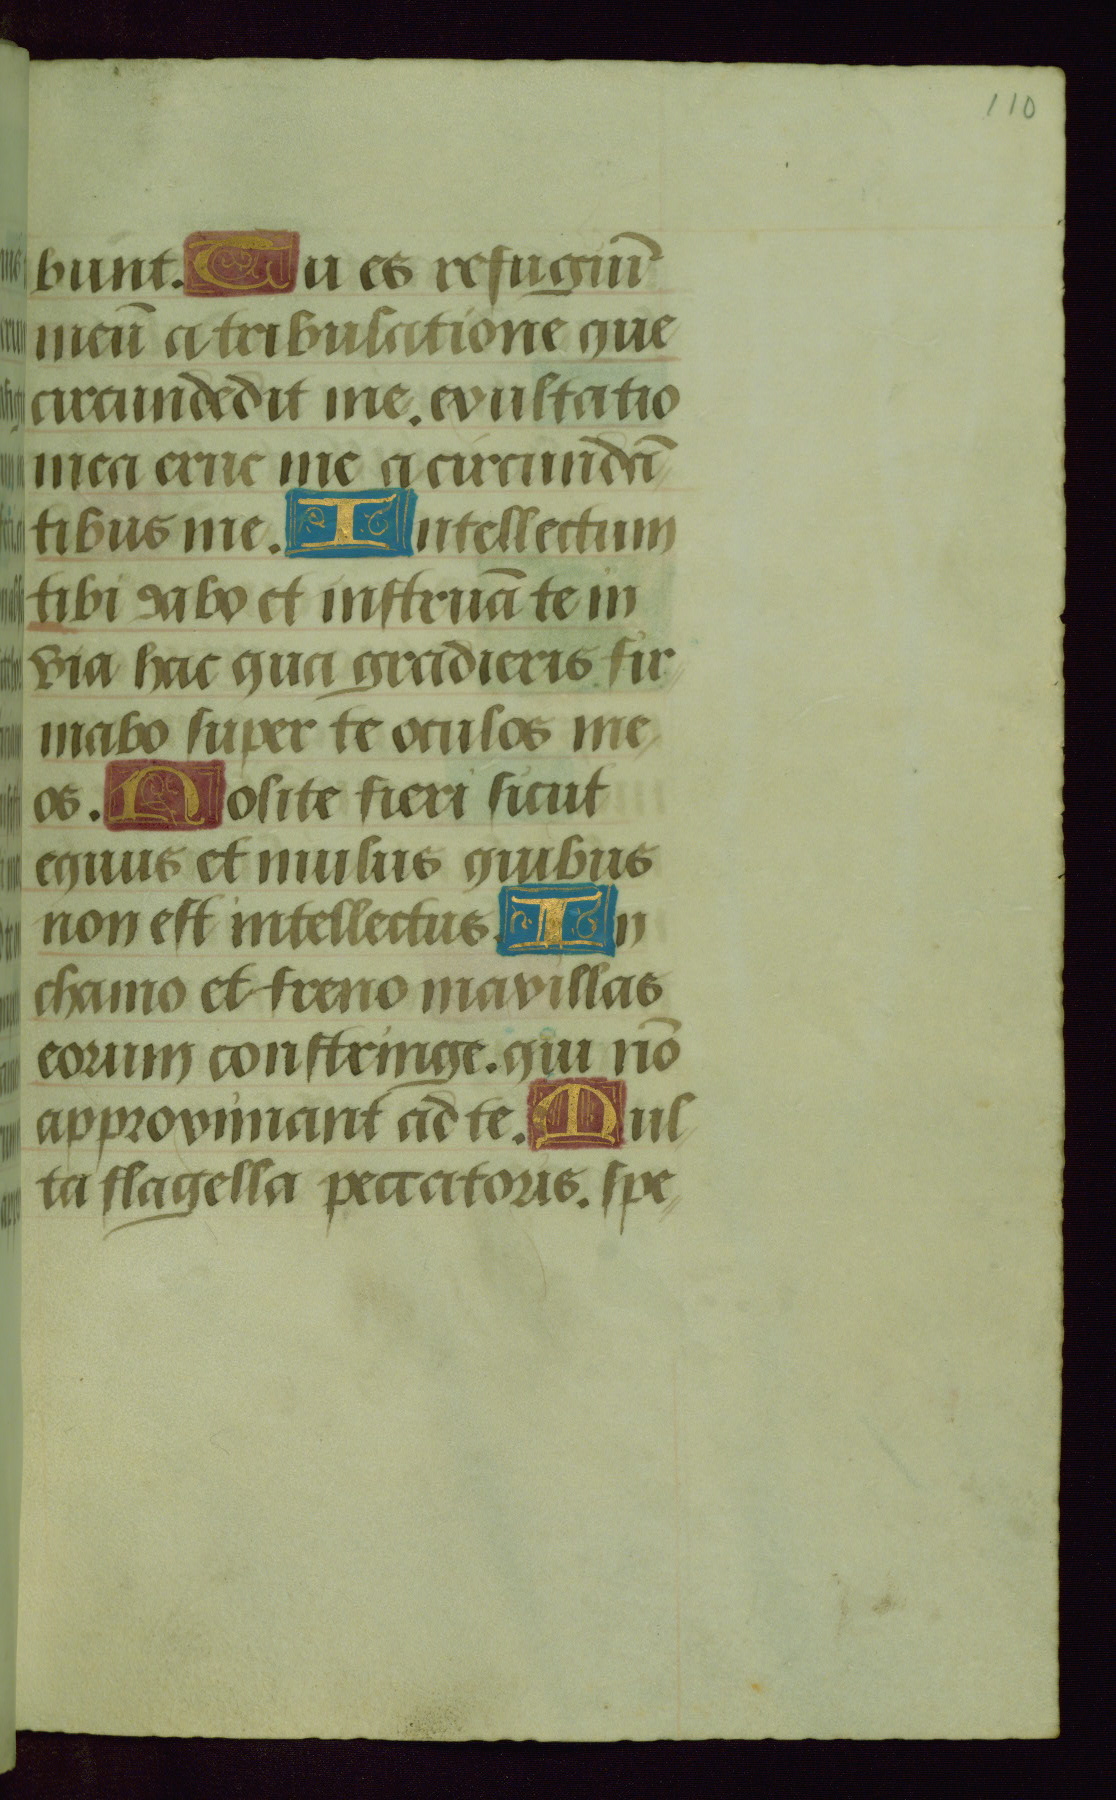 110
bunt. Tu es refugiũ
meũ a tribulatione que
circundedit me. exultatio
mea erue me a circundã
tibus me. Intellectum
tibi dabo et instruã te in
via hac qua gradieris fir
mabo super te oculos me
os. Nolite fieri sicut
equus et mulus quibus
non est intellectus. In
chamo et freno maxillas
eorum constringe. qui nõ
approximant ad te. Mul
ta flagella peccatoris. spe